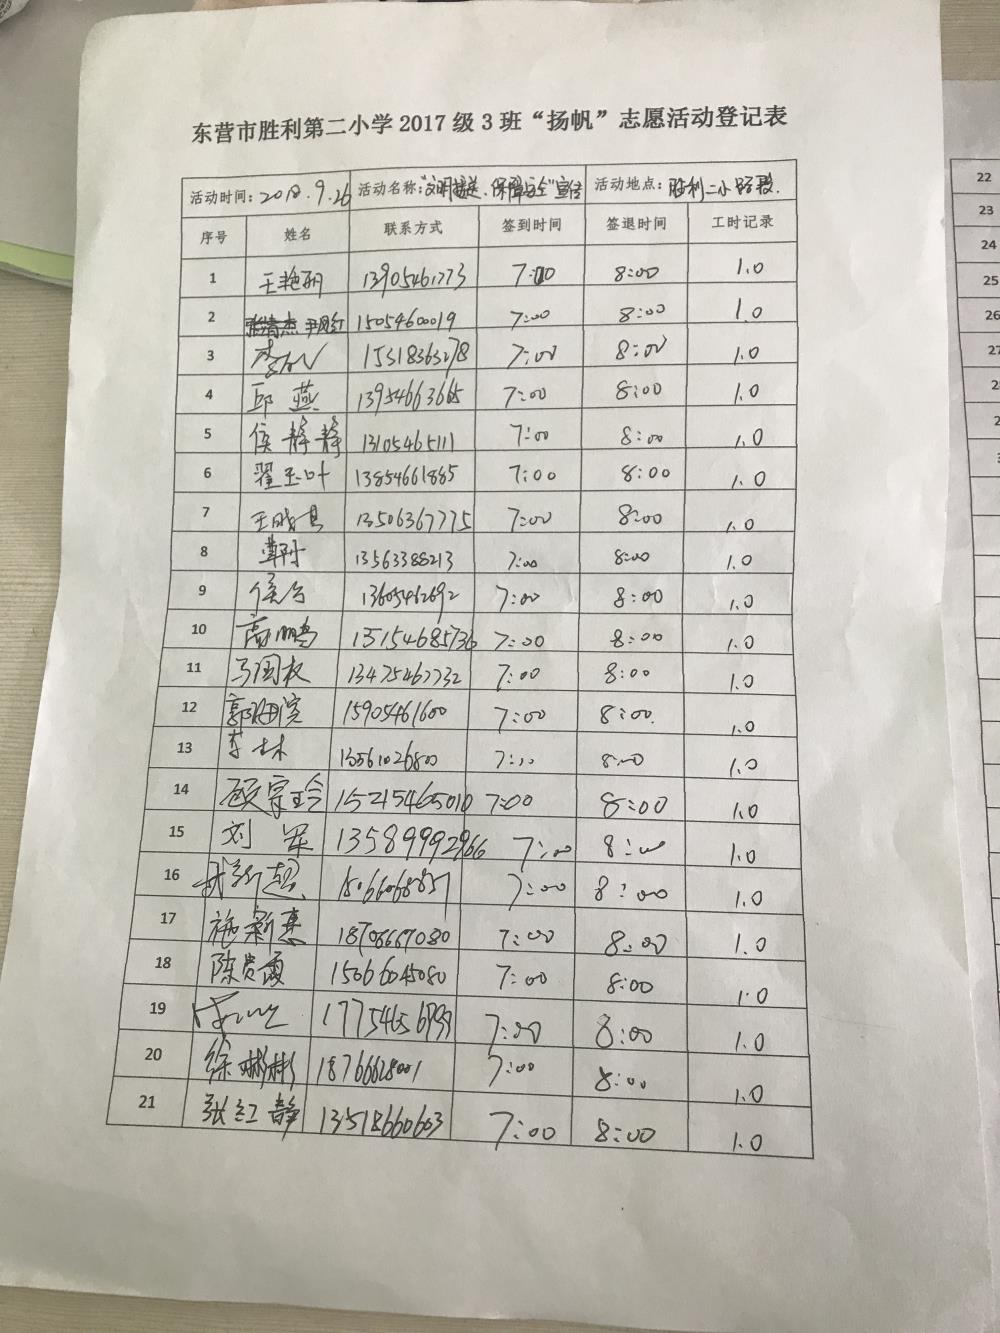 东营市胜利第二小学2017级3班“扬帆”志愿活动登记表
活动时间：2018.9.26 活动名称：“文明接送、保障安全”宣传 活动地点：胜利二小路段.
序号 姓名 联系方式 签到时间 签退时间 工时记录
1 王艳丽 13905461773 7:00 8:00 1.0
2 15054600019 7:00 8:00 1.0
3 15318363278 7:00 8:00 1.0
4 邱燕 13954663665 7:00 8:00 1.0
5 侯静静 13105465111 7:00 8:00 1.0
6 翟玉叶 13854661885 7:00 8:00 1.0
7 王晓县 13506367775 7:00 8:00 1.0
8 13563388213 7:00 8:00 1.0
9 13605462692 7:00 8:00 1.0
10 高鹏 15154685736 7:00 8:00 1.0
11 马国权 13475467732 7:00 8:00 1.0
12 15905461600 7:00 8:00. 1.0
13 李林 13561026800 7:00 8:00 1.0
14 顾宗玲 15215465010 7:00 8:00 1.0
15 刘军 13589992966 7:00 8:00 1.0
16 武新超 15066068857 7:00 8:00 1.0
17 施新惠 18706667080 7:00 8:00 1.0
18 陈贵霞 15066045080 7:00 8:00 1.0
19 17754656999 7:00 8:00 1.0
20 徐彬彬 18766628001 7:00 8:00 1.0
21 张红静 13518660603 7:00 8:00 1.0
22
23
24
25
26
27